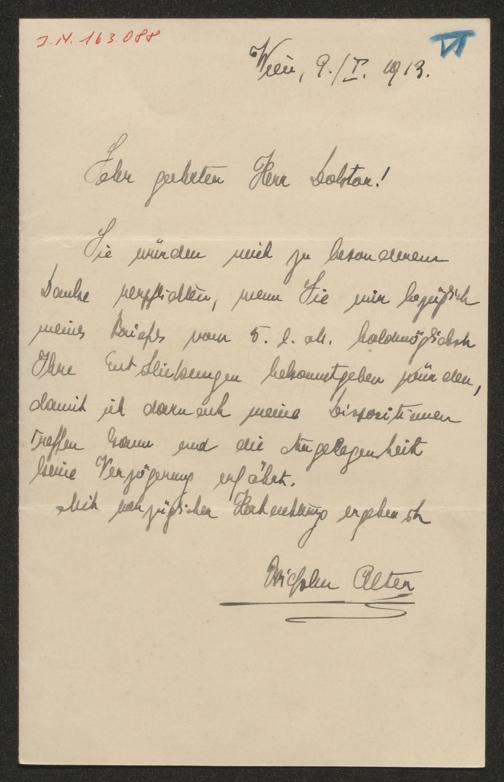 J.N. 163.088
VI
Wien, 9./I. 1913.
Sehr geehrter Herr Doktor!
Sie würden mich zu besonderem
Danke verpflichten, wenn Sie mir bezüglich
meines Briefes vom 5. l. M. baldmöglichst
Ihre Entschließungen bekanntgeben würden,
damit ich darnach meine Dispositionen
treffen kann und die Angelegenheit
keine Verzögerung erfährt.
Mit vorzüglicher Hochachtung ergebenst
Wilhelm Alter